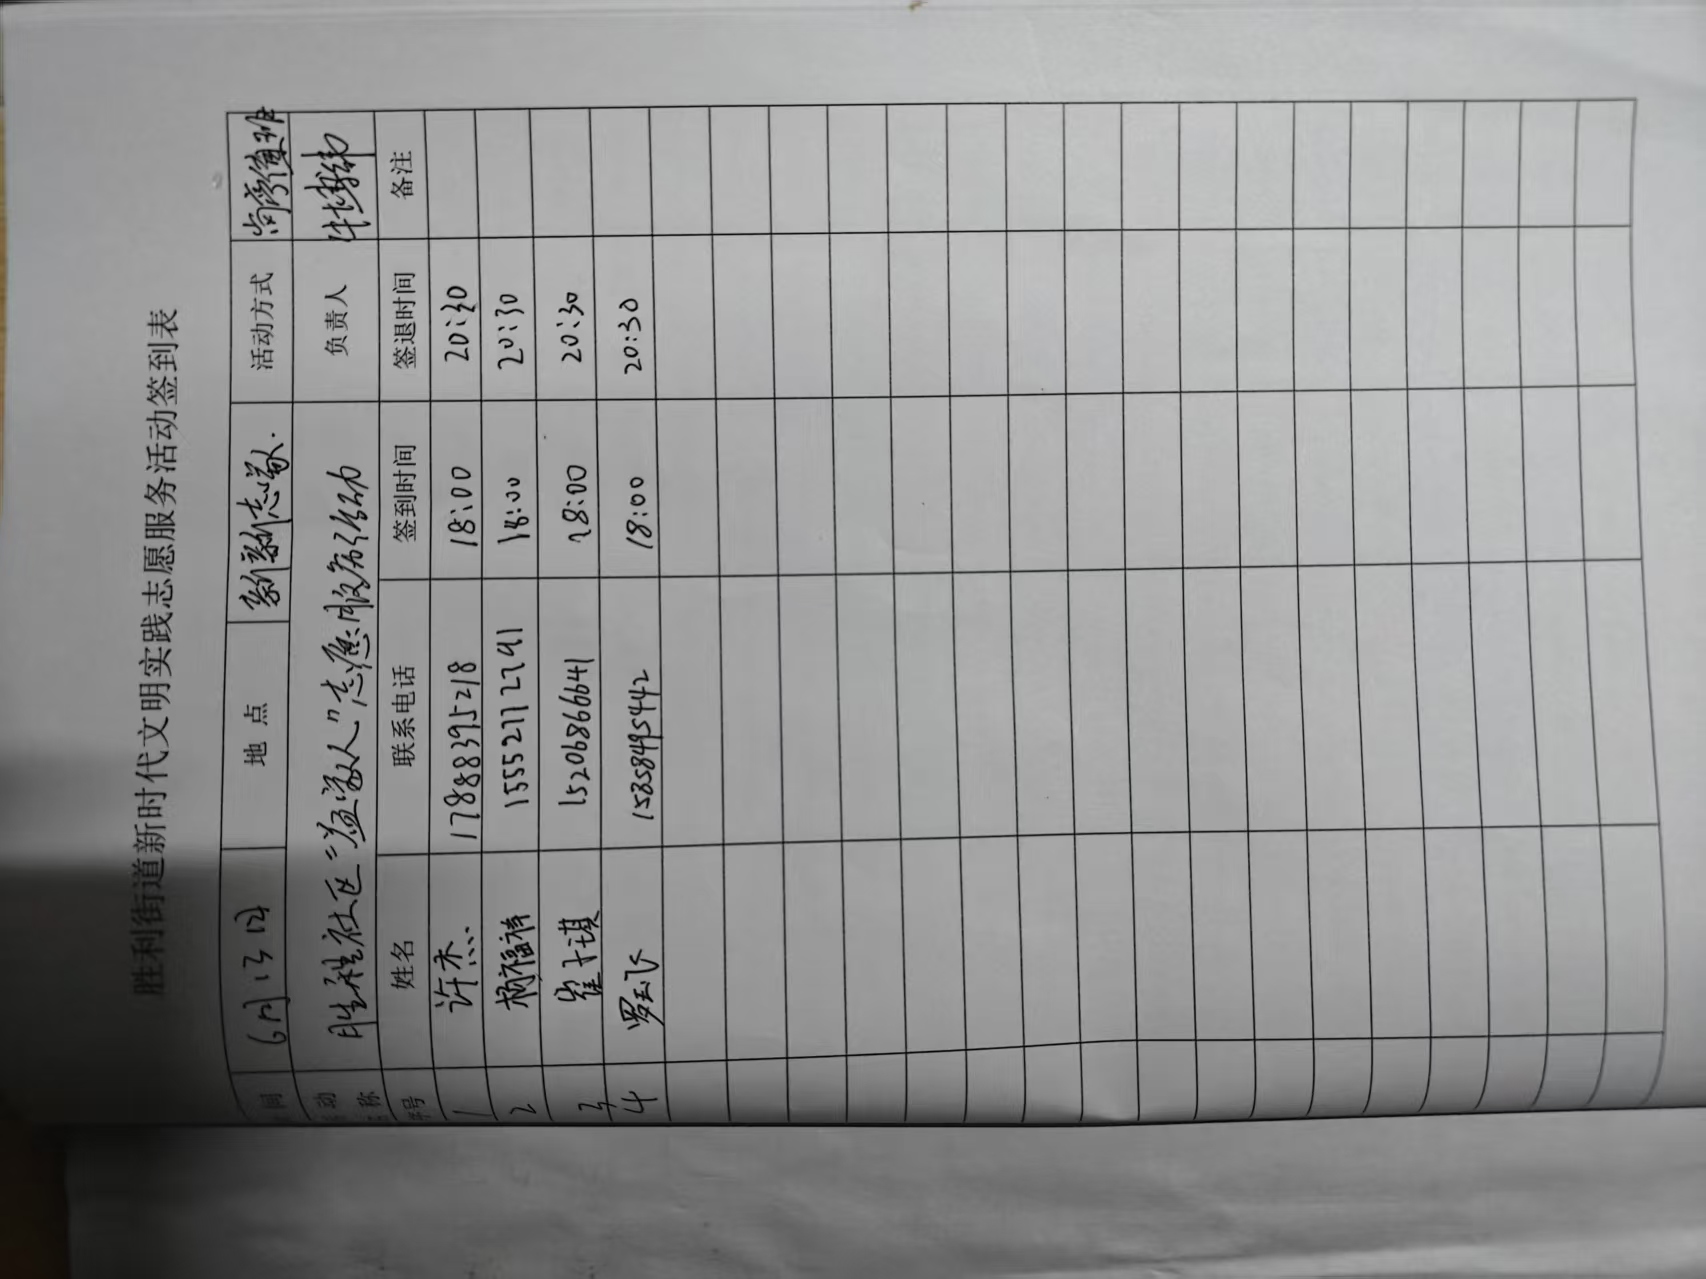 胜利街道新时代文明实践志愿服务活动签到表
间 6月13日 地 点 活动方式
动
称 胜利社区"益家人"志愿服务活动 负责人
号 姓名 联系电话 签到时间 签退时间 备注
1 许杰 17888395218 18:00 20:30
2 杨福祥 15552712241 18:00 20:30
3 崔于琪 15206866641 18:00 20:30
4 罗飞 15858495442 18:00 20:30